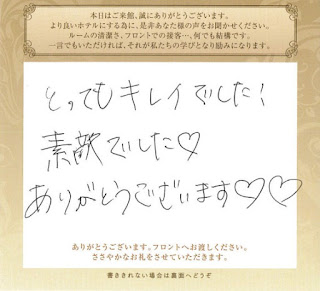 本日はご来館、誠にありがとうございます。
より良いホテルにする為に、是非あなた様の声をお聞かせください。
ルームの清潔さ、フロントでの接客…、何でも結構です。
一言でもいただければ、それが私たちの学びとなり励みになります。
とってもキレイでした!
素敵でした♡
ありがとうございます♡♡
ありがとうございます。フロントへお渡しください。
ささやかなお礼をさせていただきます。
書ききれない場合は裏面へどうぞ